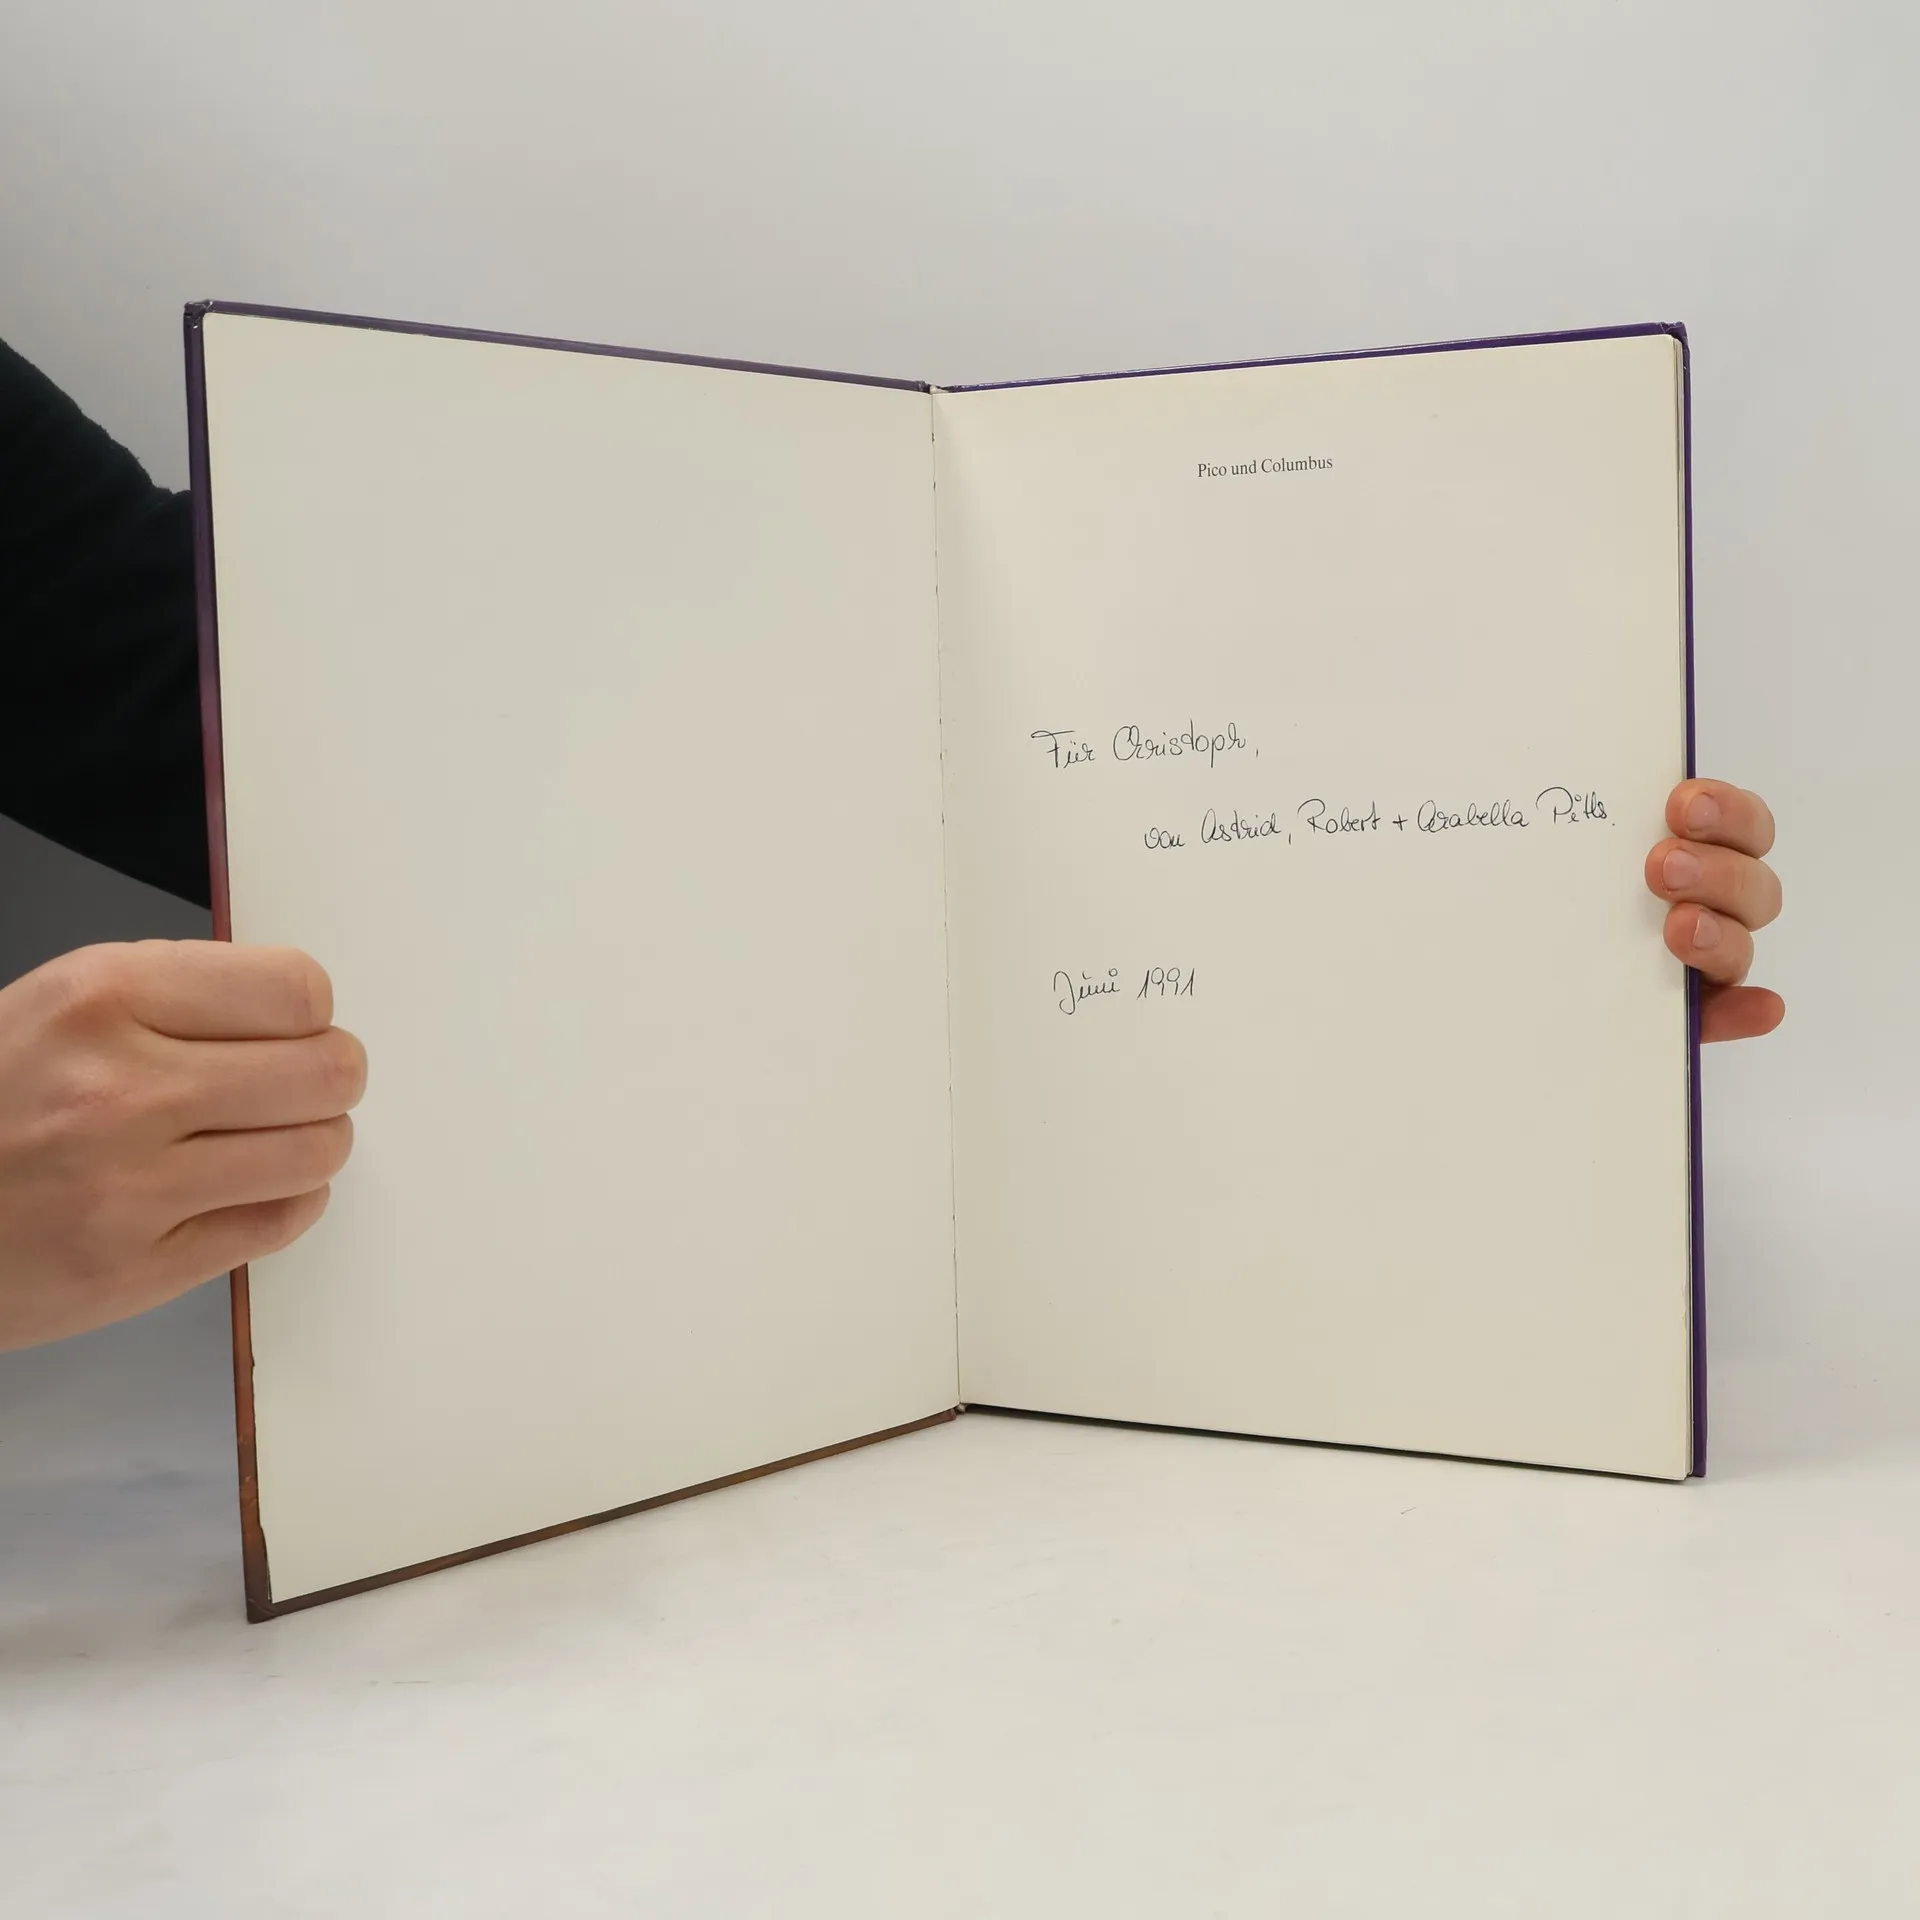 Pico und Columbus
Für Christoph,
von Astrid, Robert + Arabella Pitls.
Juni 1991